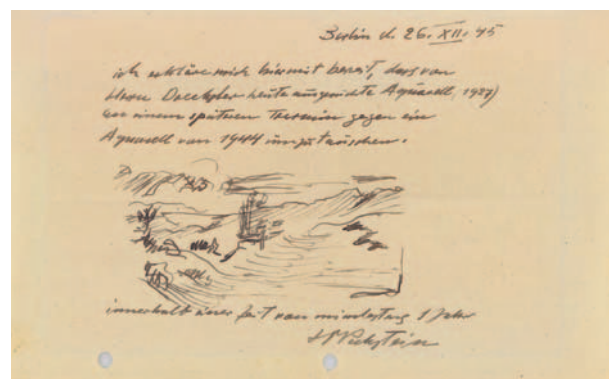 Berlin d. 26. XII. 45
ich erkläre mich hiermit bereit, dass von
Herrn heute Aquarell, 1927)
an einem späteren Termin gegen ein
Aquarell von 1944 umzutauschen.
innerhalb einer Zeit von mindestens 1 Jahr
HMPechstein